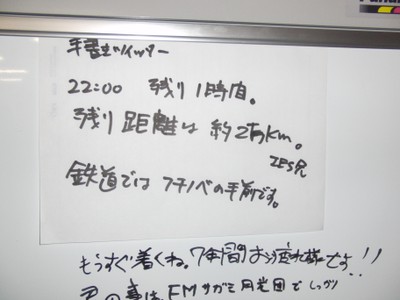 手書きツイッター
22:00 残り1時間。
残り距離は約2万km。
IES兄
鉄道ではフチノベの手前です。
もうすぐ着くね。7年間お疲れ様でした!!
君の事は、FMサガミ月光団でしっかり